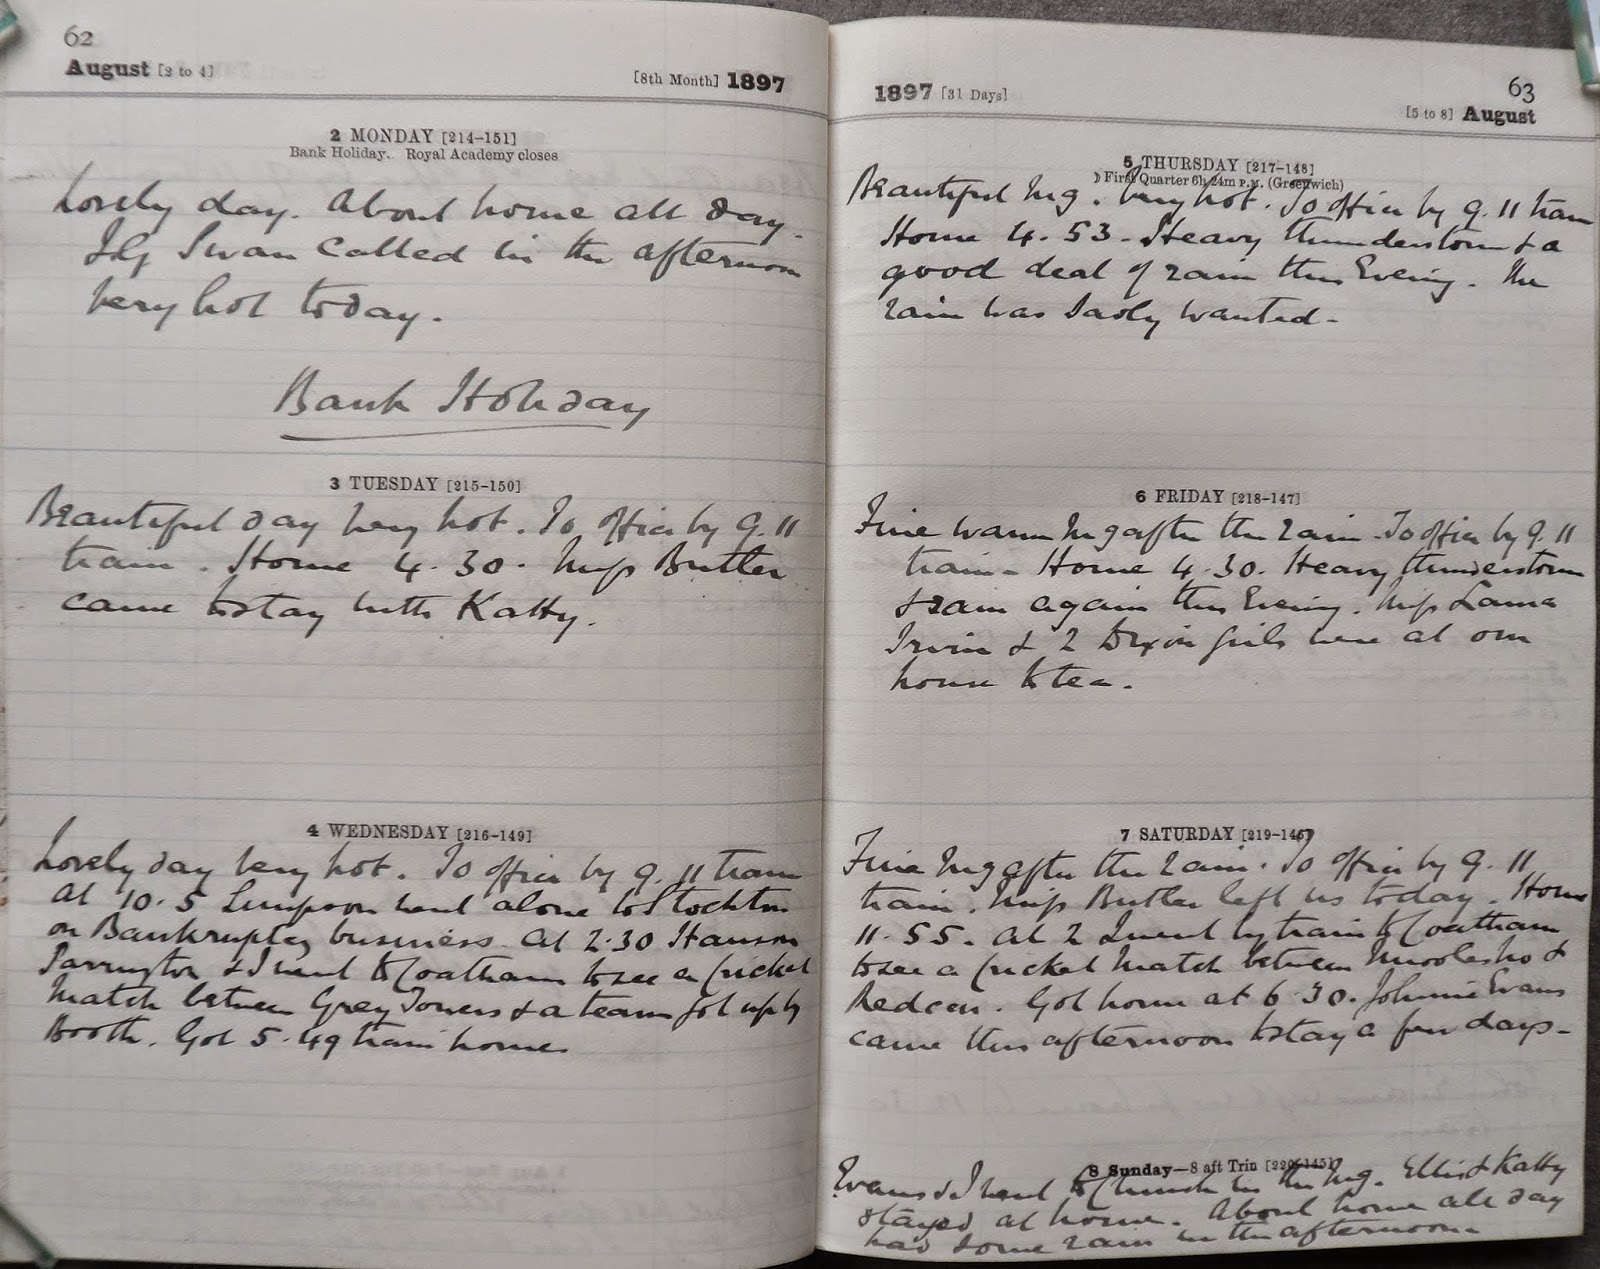 62
August [2 to 4]
[8th Month] 1897
2 MONDAY [214-151]
Bank Holiday. Royal Academy closes
Lovely day. About home all day.
Swan called in the afternoon
Very hot today.
Bank Holiday
3 TUESDAY [215-150]
Beautiful day very hot. To office by 9.11
train. Home 4.30. Miss Butler
came to stay with Katty.
4 WEDNESDAY [216-149]
Lovely day very hot. To office by 9.11 train
At 10.5 Simpson & I went alone to Stockton
on Bankruptcy business. At 2.30 Hanson
Parrington & I went to Coatham to see a Cricket
Match between Grey Towers & a team got up by
Booth. Got 5.49 train home
1897 [31 Days]
63
[5 to 8] August
5 THURSDAY [217-148]
☽ First Quarter 6h 24m P.M. (Greenwich)
Beautiful Mg. Very hot. To office by 9.11 train
Home 4.53. Heavy thunderstorm & a
good deal of rain this Evening. The
rain was sadly wanted.
6 FRIDAY [218-147]
Fine warm Mg after the rain. To office by 9.11
train. Home 4.30. Heavy thunderstorm
& rain again this Evening. Miss Laura
Irvin & 2 Dixon girls were at our
house to tea.
7 SATURDAY [219-146]
Fine Mg after the rain. To office by 9.11
train. Miss Butler left us today. Home
11.55. At 2 I went by train to Coatham
to see a Cricket Match between Middlesbro &
Redcar. Got home at 6.30. Johnnie Evans
came this afternoon to stay a few days.
8 Sunday—8 aft Trin [220-145]
Evans & I went to Church in the Mg. Ellis & Katty
stayed at home. About home all day
had some rain in the afternoon.